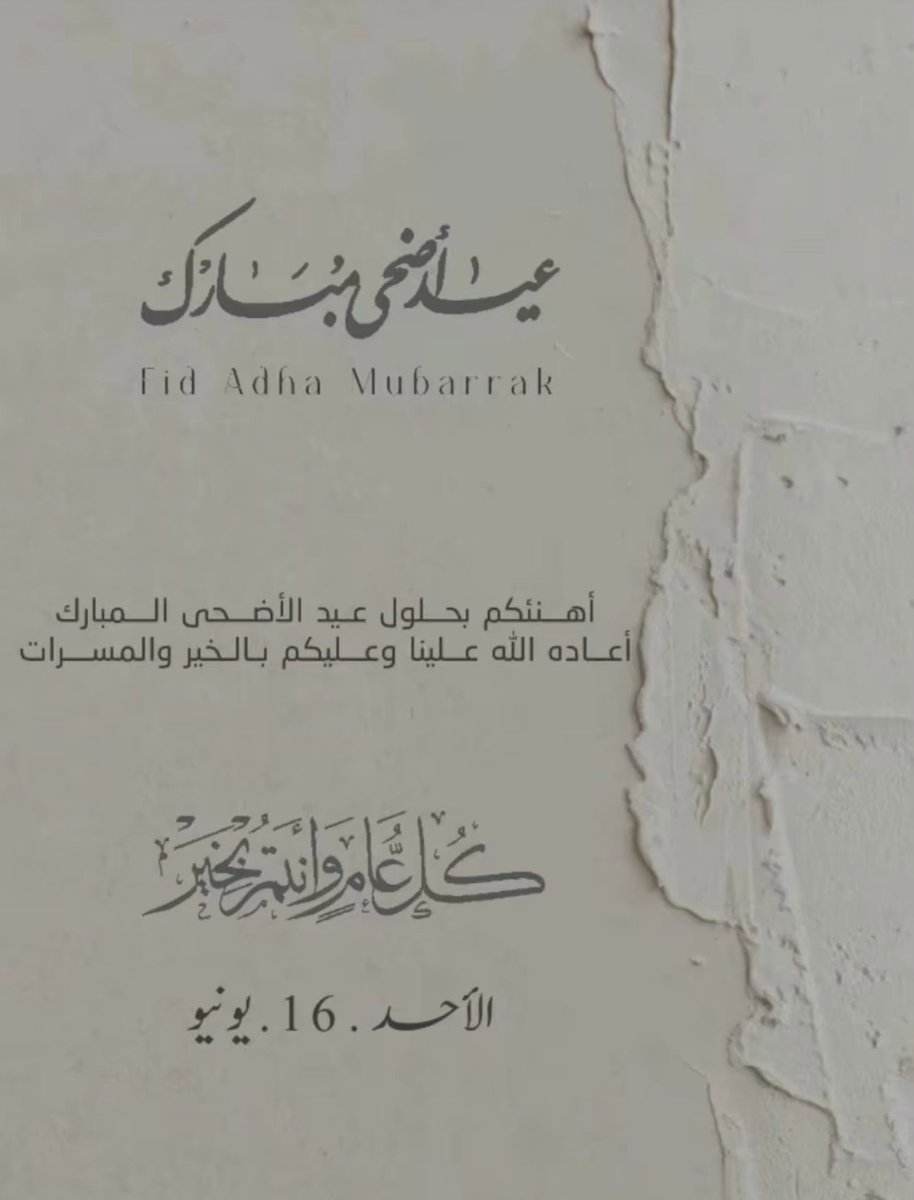 عيد أضحى مبارك
Eid Adha Mubarrak
أهنئكم بحلول عيد الأضحى المبارك
أعاده الله علينا وعليكم بالخير والمسرات
كُل عَّام وَأَنتُم بِخَيرَ
الأحد . 16 . يونيو